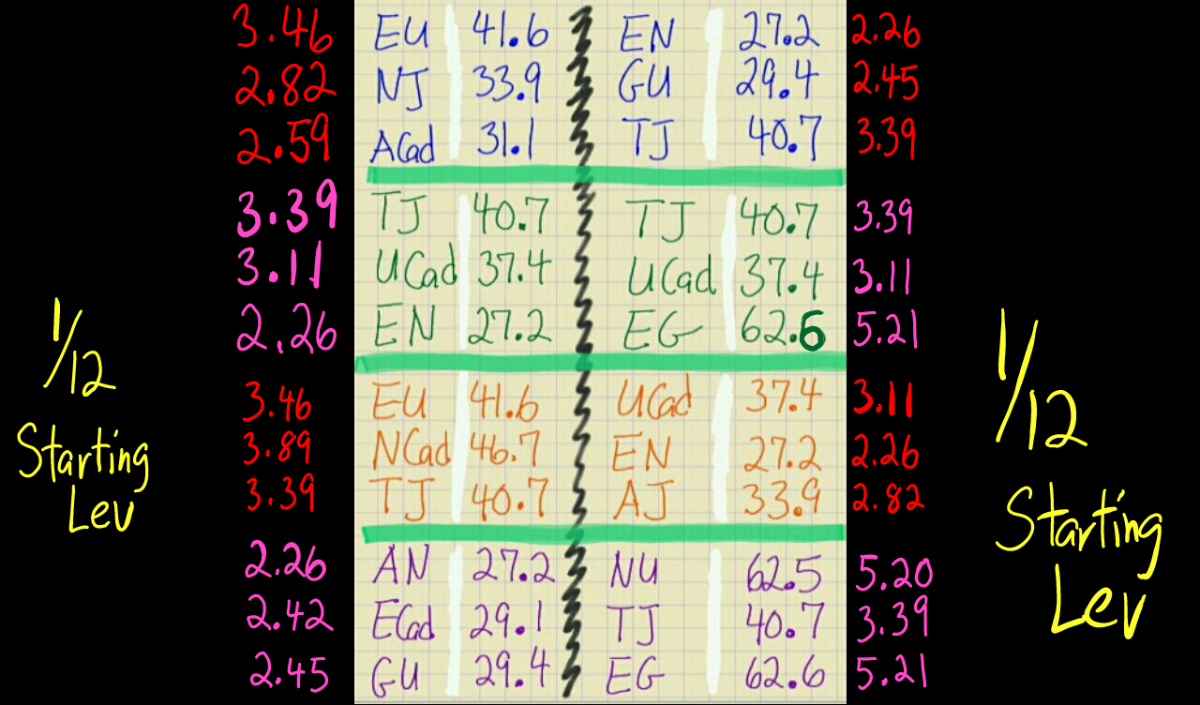 3.46 EU 41.6 EN 27.2 2.26
2.82 NJ 33.9 GU 29.4 2.45
2.59 ACad 31.1 TJ 40.7 3.39
3.39 TJ 40.7 TJ 40.7 3.39
3.11 UCad 37.4 UCad 37.4 3.11
2.26 EN 27.2 EG 62.6 5.21
3.46 EU 41.6 UCad 37.4 3.11
3.89 NCad 46.7 EN 27.2 2.26
3.39 TJ 40.7 AJ 33.9 2.82
2.26 AN 27.2 NU 62.5 5.20
2.42 ECad 29.1 TJ 40.7 3.39
2.45 GU 29.4 EG 62.6 5.21
1/12
Starting
Lev
1/12
Starting
Lev